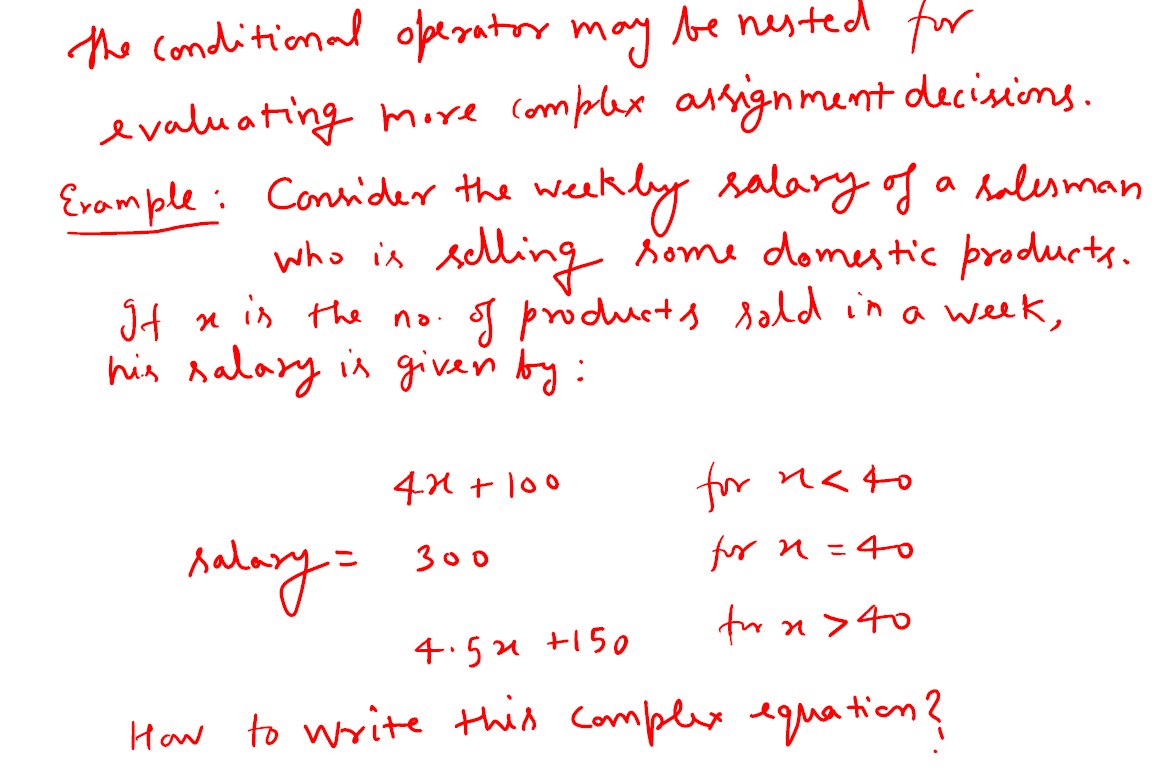 The conditional operator may be nested for
evaluating more complex assignment decisions.
Example : Consider the weekly salary of a salesman
who is selling some domestic products.
If x is the no. of products sold in a week,
his salary is given by :
4x + 100 for x < 40
salary = 300 for x = 40
4.5x + 150 for x > 40
How to write this complex equation?